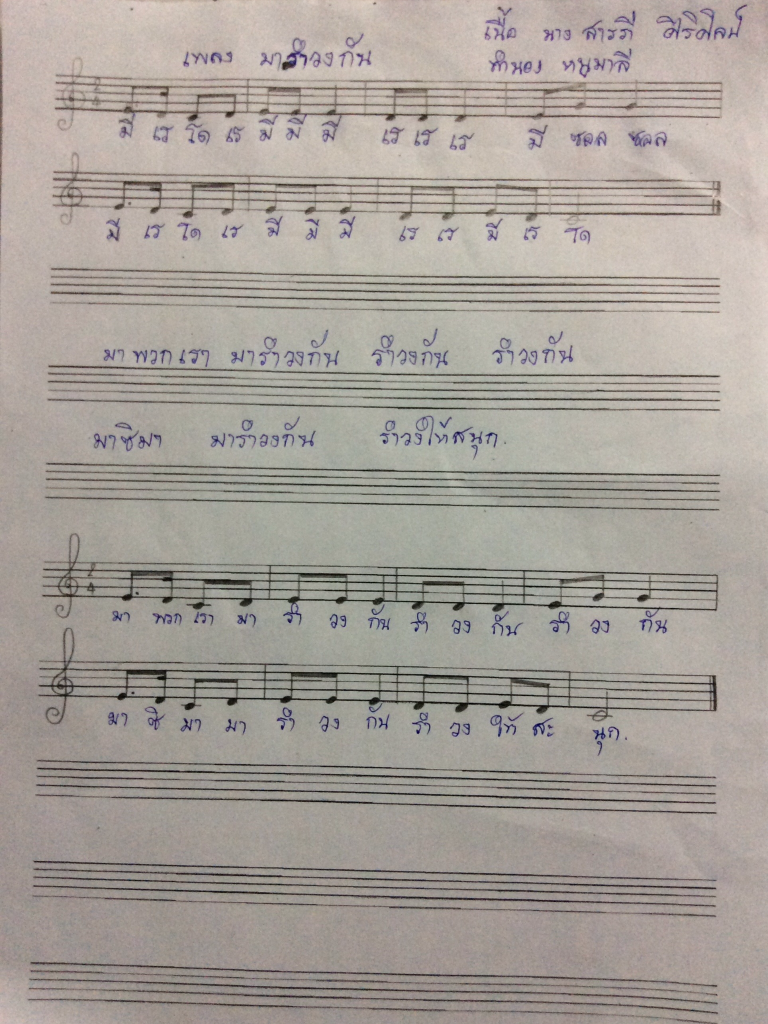 เนื้อ นาง สารภี ศิริศิลป์
เพลง มารำวงกัน
ทำนอง หนูมาลี
2 4
มี เร โด เร มี มี มี เร เร เร มี ซอล ซอล
มี เร โด เร มี มี มี เร เร มี เร โด
มา พวก เรา มารำวงกัน รำวงกัน รำวงกัน
มาซิมา มารำวงกัน รำวงให้สนุก.
2 4
มา พวก เรา มา รำ วง กัน รำ วง กัน รำ วง กัน
มา ซิ มา มา รำ วง กัน รำ วง ให้ สะ นุก.